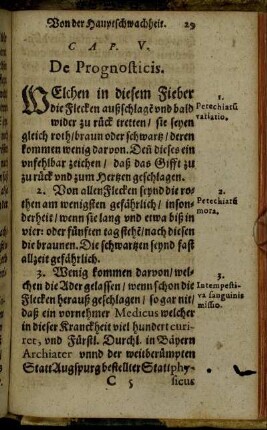 Von der Hauptschwachheit. 29
CAP. V.
De Prognosticis.
WElchen in diesem Fieber
die Flecken außschlagē vnd bald
wider zu rück tretten/ sie seyen
gleich roth/braun oder schwartz/deren
kommen wenig darvon. Deñ dieses ein
vnfehlbar zeichen/ daß das Gifft zu
zu rück vnd zum Hertzen geschlagen.
1.
Petechiatū
variatio.
2. Von allen Flecken seynd die ro-
then am wenigsten gefährlich/ inson-
derheit/ wenn sie lang vnd etwa biß in
vier: oder fünfften tag steht/nach diesen
die braunen. Die schwartzen seynd fast
allzeit gefährlich.
2.
Petechiatū
mora.
3. Wenig kommen darvon/ wel-
chen die Ader gelassen/ wenn schon die
Flecken herauß geschlagen/ so gar nit/
daß ein vornehmer Medicus welcher
in dieser Kranckheit viel hundert curi-
ret, vnd Fürstl. Durchl. in Bäyern
Archiater vnnd der weitberümpten
Statt Augspurg bestellter Stattphy-
3.
Intempesti-
va sanguinis
missio.
C 5 sicus